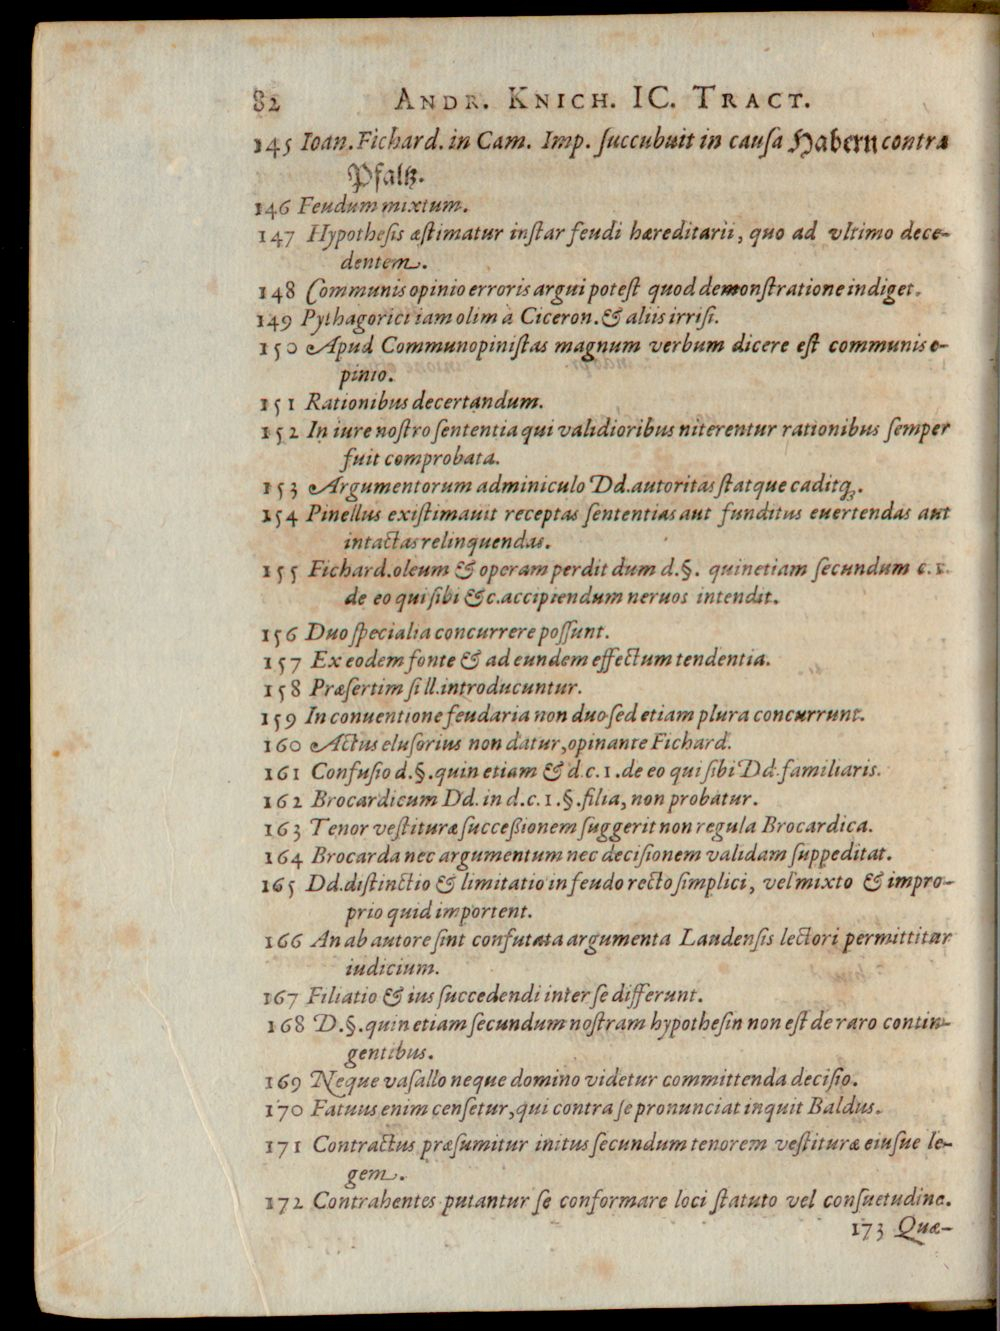 82 ANDR. KNICH. IC. TRACT.
145 Ioan. Fichard. in Cam. Imp. ſuccubuit in cauſa Habern contra
Pfaltz.
146 Feudum mixtum.
147 Hypotheſis æſtimatur inſtar feudi hæreditarii, quo ad vltimo dece-
dentem.
148 Communis opinio erroris argui poteſt quod demonſtratione indiget.
149 Pythagorici iam olim à Ciceron. & aliis irriſi.
150 Apud Communopiniſtas magnum verbum dicere eſt communis o-
pinio.
151 Rationibus decertandum.
152 In iure noſtro ſententia qui validioribus niterentur rationibus ſemper
fuit comprobata.
153 Argumentorum adminiculo Dd. autoritas ſtatque caditq;.
154 Pinellus exiſtimauit receptas ſententias aut funditus euertendas aut
intactas relinquendas.
155 Fichard. oleum & operam perdit dum d. §. quinetiam ſecundum c. 1.
de eo qui ſibi &c. accipiendum neruos intendit.
156 Duo ſpecialia concurrere poſſunt.
157 Ex eodem fonte & ad eundem effectum tendentia.
158 Præſertim ſi ll. introducuntur.
159 In conuentione feudaria non duo ſed etiam plura concurrunt.
160 Actus eluſorius non datur, opinante Fichard.
161 Confuſio d. §. quin etiam & d. c. 1. de eo qui ſibi Dd. familiaris.
162 Brocardicum Dd. in d. c. 1. §. filia, non probatur.
163 Tenor veſtituræ ſucceßionem ſuggerit non regula Brocardica.
164 Brocarda nec argumentum nec deciſionem validam ſuppeditat.
165 Dd. diſtinctio & limitatio in feudo recto ſimplici, vel mixto & impro-
prio quid importent.
166 An ab autore ſint confutata argumenta Laudenſis lectori permittitur
iudicium.
167 Filiatio & ius ſuccedendi inter ſe differunt.
168 D. §. quin etiam ſecundum noſtram hypotheſin non eſt de raro contin-
gentibus.
169 Neque vaſallo neque domino videtur committenda deciſio.
170 Fatuus enim cenſetur, qui contra ſe pronunciat inquit Baldus.
171 Contractus præſumitur initus ſecundum tenorem veſtituræ eiuſue le-
gem.
172 Contrahentes putantur ſe conformare loci ſtatuto vel conſuetudine.
173 Quæ-